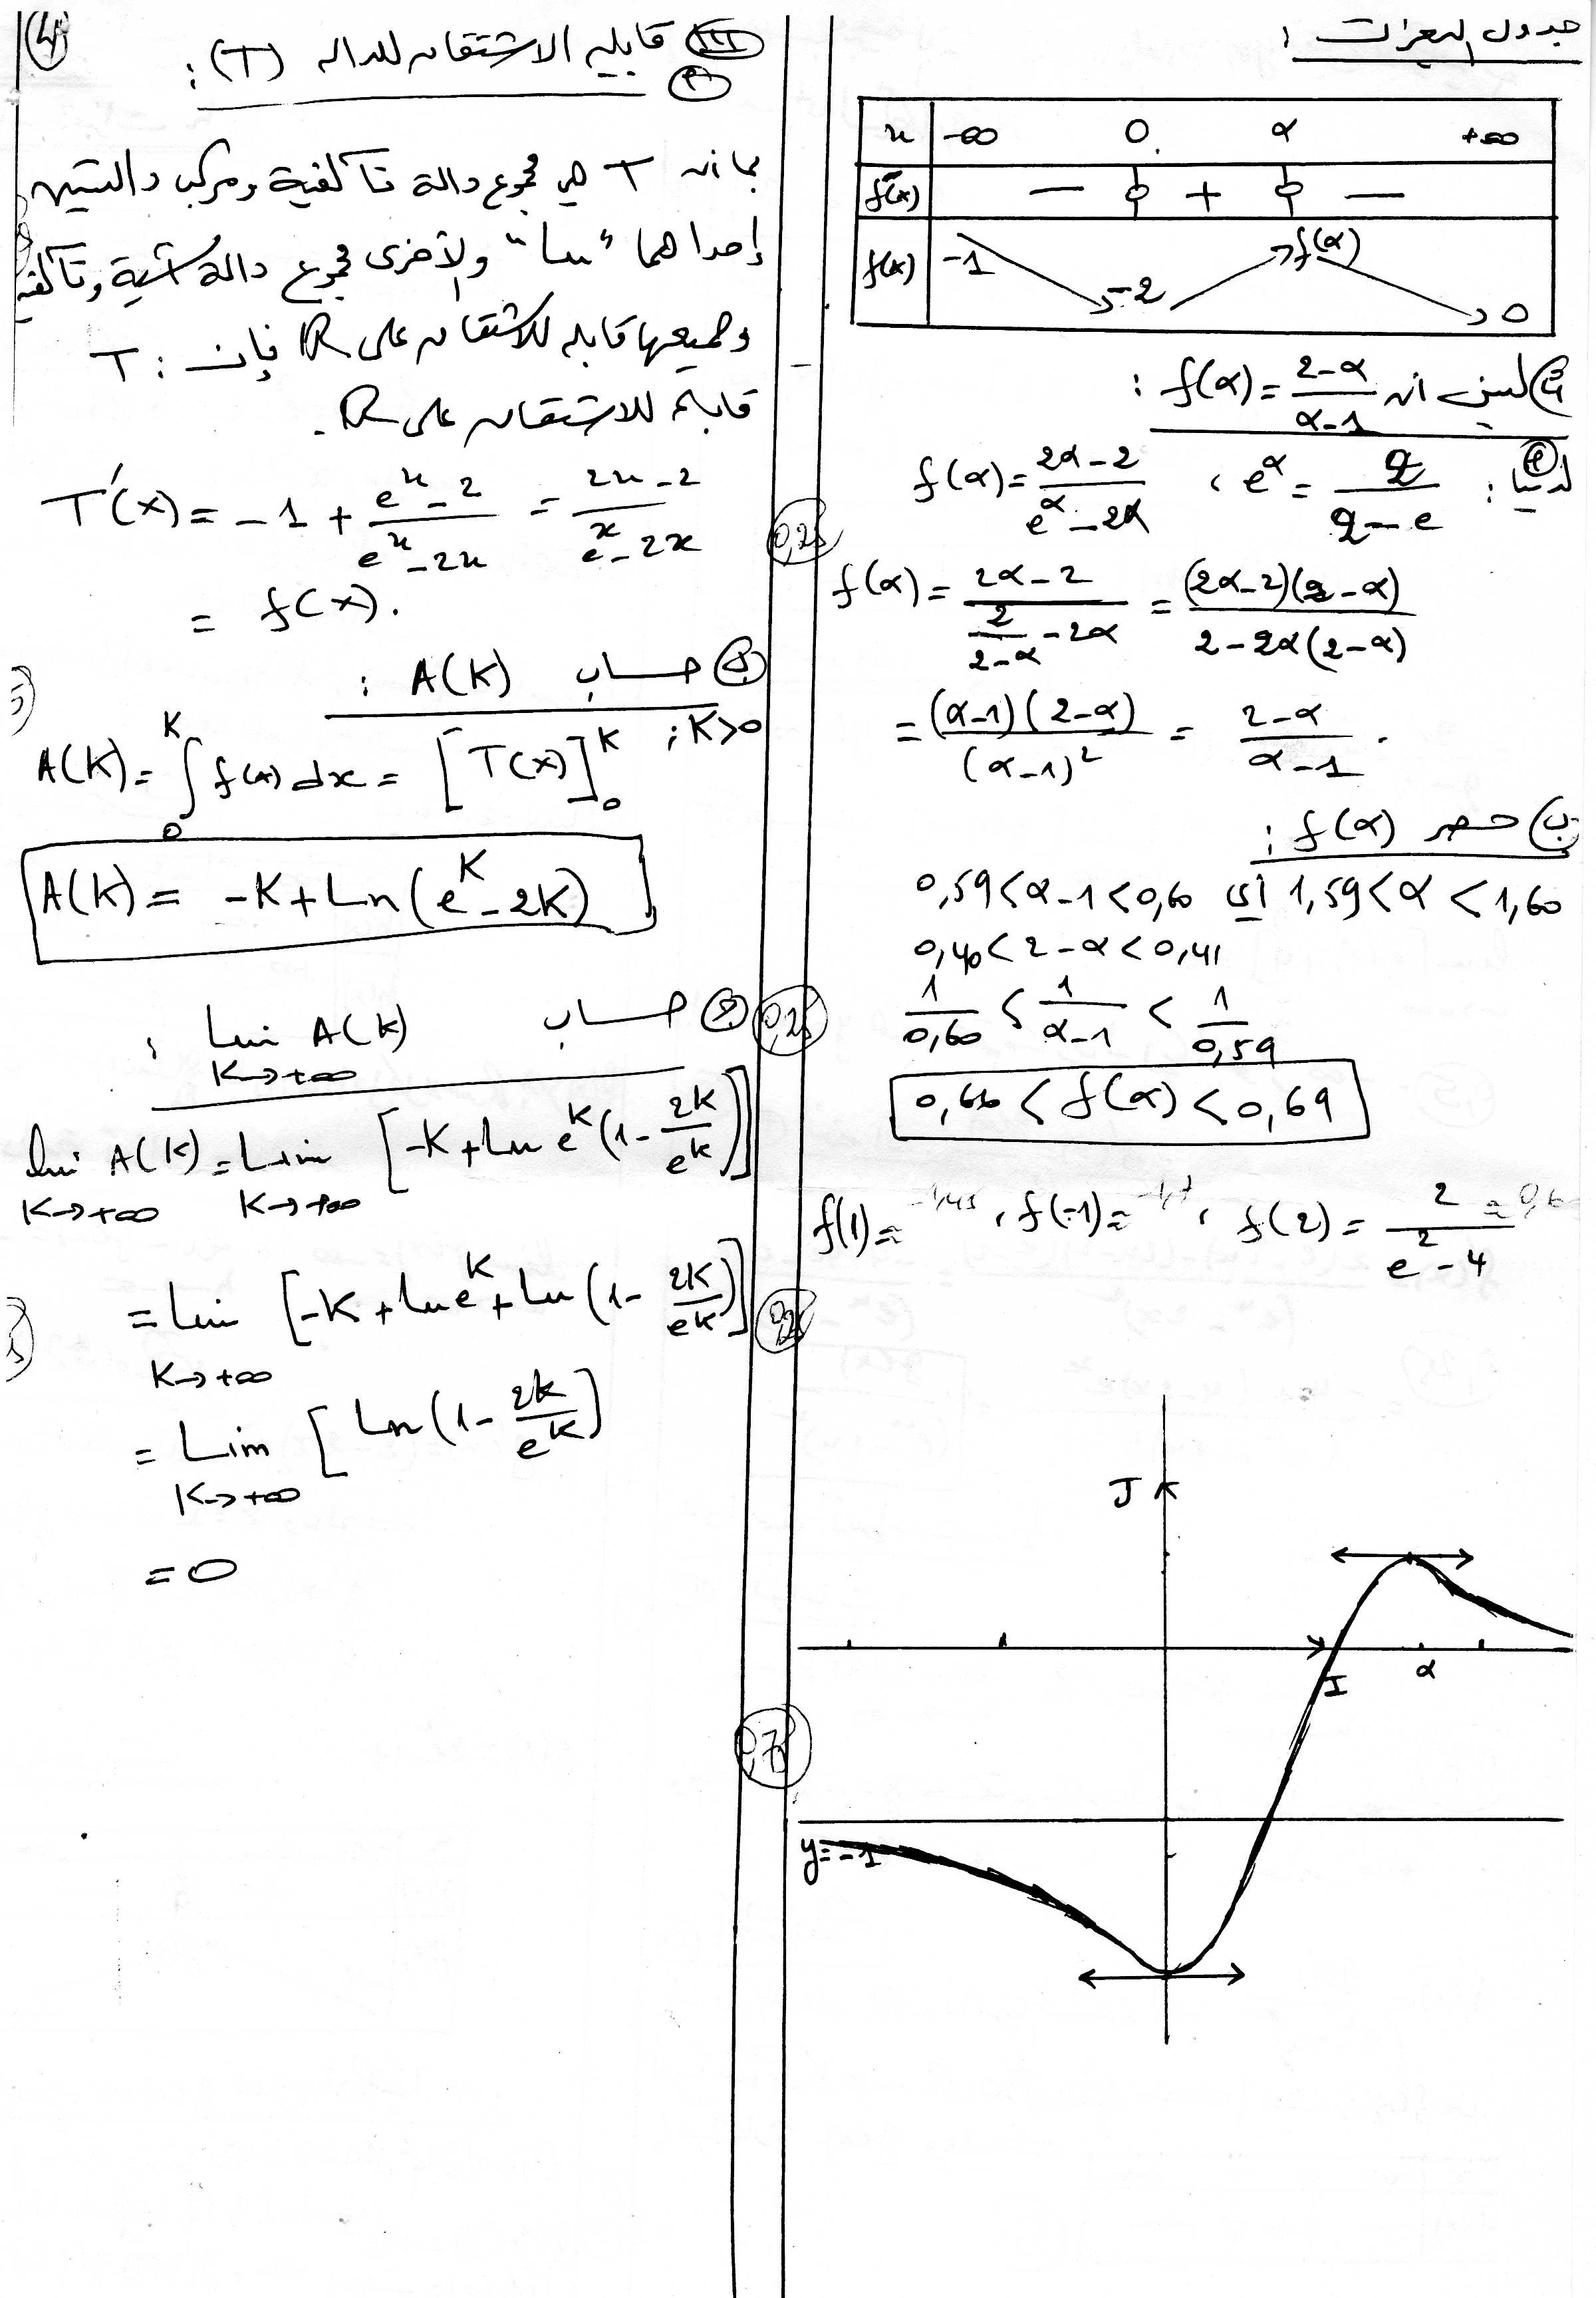 جدول التغيرات :
x -∞ 0 α +∞
f'(x) - 0 + 0 -
f(x) -1 -2 f(α) 0
لنبين أن f(α) = (2-α)/(α-1) :
لدينا : e^α = 2/(2-e) ، f(α) = (2α-2)/(e^α-2α)
f(α) = (2α-2)/(2/(2-α) - 2α) = (2α-2)(2-α)/(2-2α(2-α))
= (α-1)(2-α)/(α-1)² = (2-α)/(α-1) .
ب) حصر f(α) :
1,59 < α < 1,60 أي 0,59 < α-1 < 0,60
0,40 < 2-α < 0,41
1/0,60 < 1/(α-1) < 1/0,59
0,66 < f(α) < 0,69
f(1) ≈ ، f(-1) ≈ ، f(2) = 2/(e²-4)
J
I α
y=-1
0,25
0,25
4
III قابلية الاشتقاق للدالة (T) :
بما أن T هي مجموع دالة تآلفية ومركب دالتين
إحداهما "ln" والأخرى مجموع دالة أسية وتآلفية
وجميعها قابلة للاشتقاق على R فإن : T
قابلة للاشتقاق على R .
T'(x) = -1 + (e^x-2)/(e^x-2x) = (2x-2)/(e^x-2x)
= f(x).
حساب A(K) :
; K>0
A(K) = ∫₀^K f(x) dx = [T(x)]₀^K
A(K) = -K + Ln(e^K - 2K)
حساب Lim A(K) :
K→+∞
lim A(K) = Lim [-K + Ln e^K (1 - 2K/e^K)]
K→+∞ K→+∞
= Lim [-K + ln e^K + ln (1 - 2K/e^K)]
K→+∞
= Lim [Ln (1 - 2k/e^K)
K→+∞
= 0